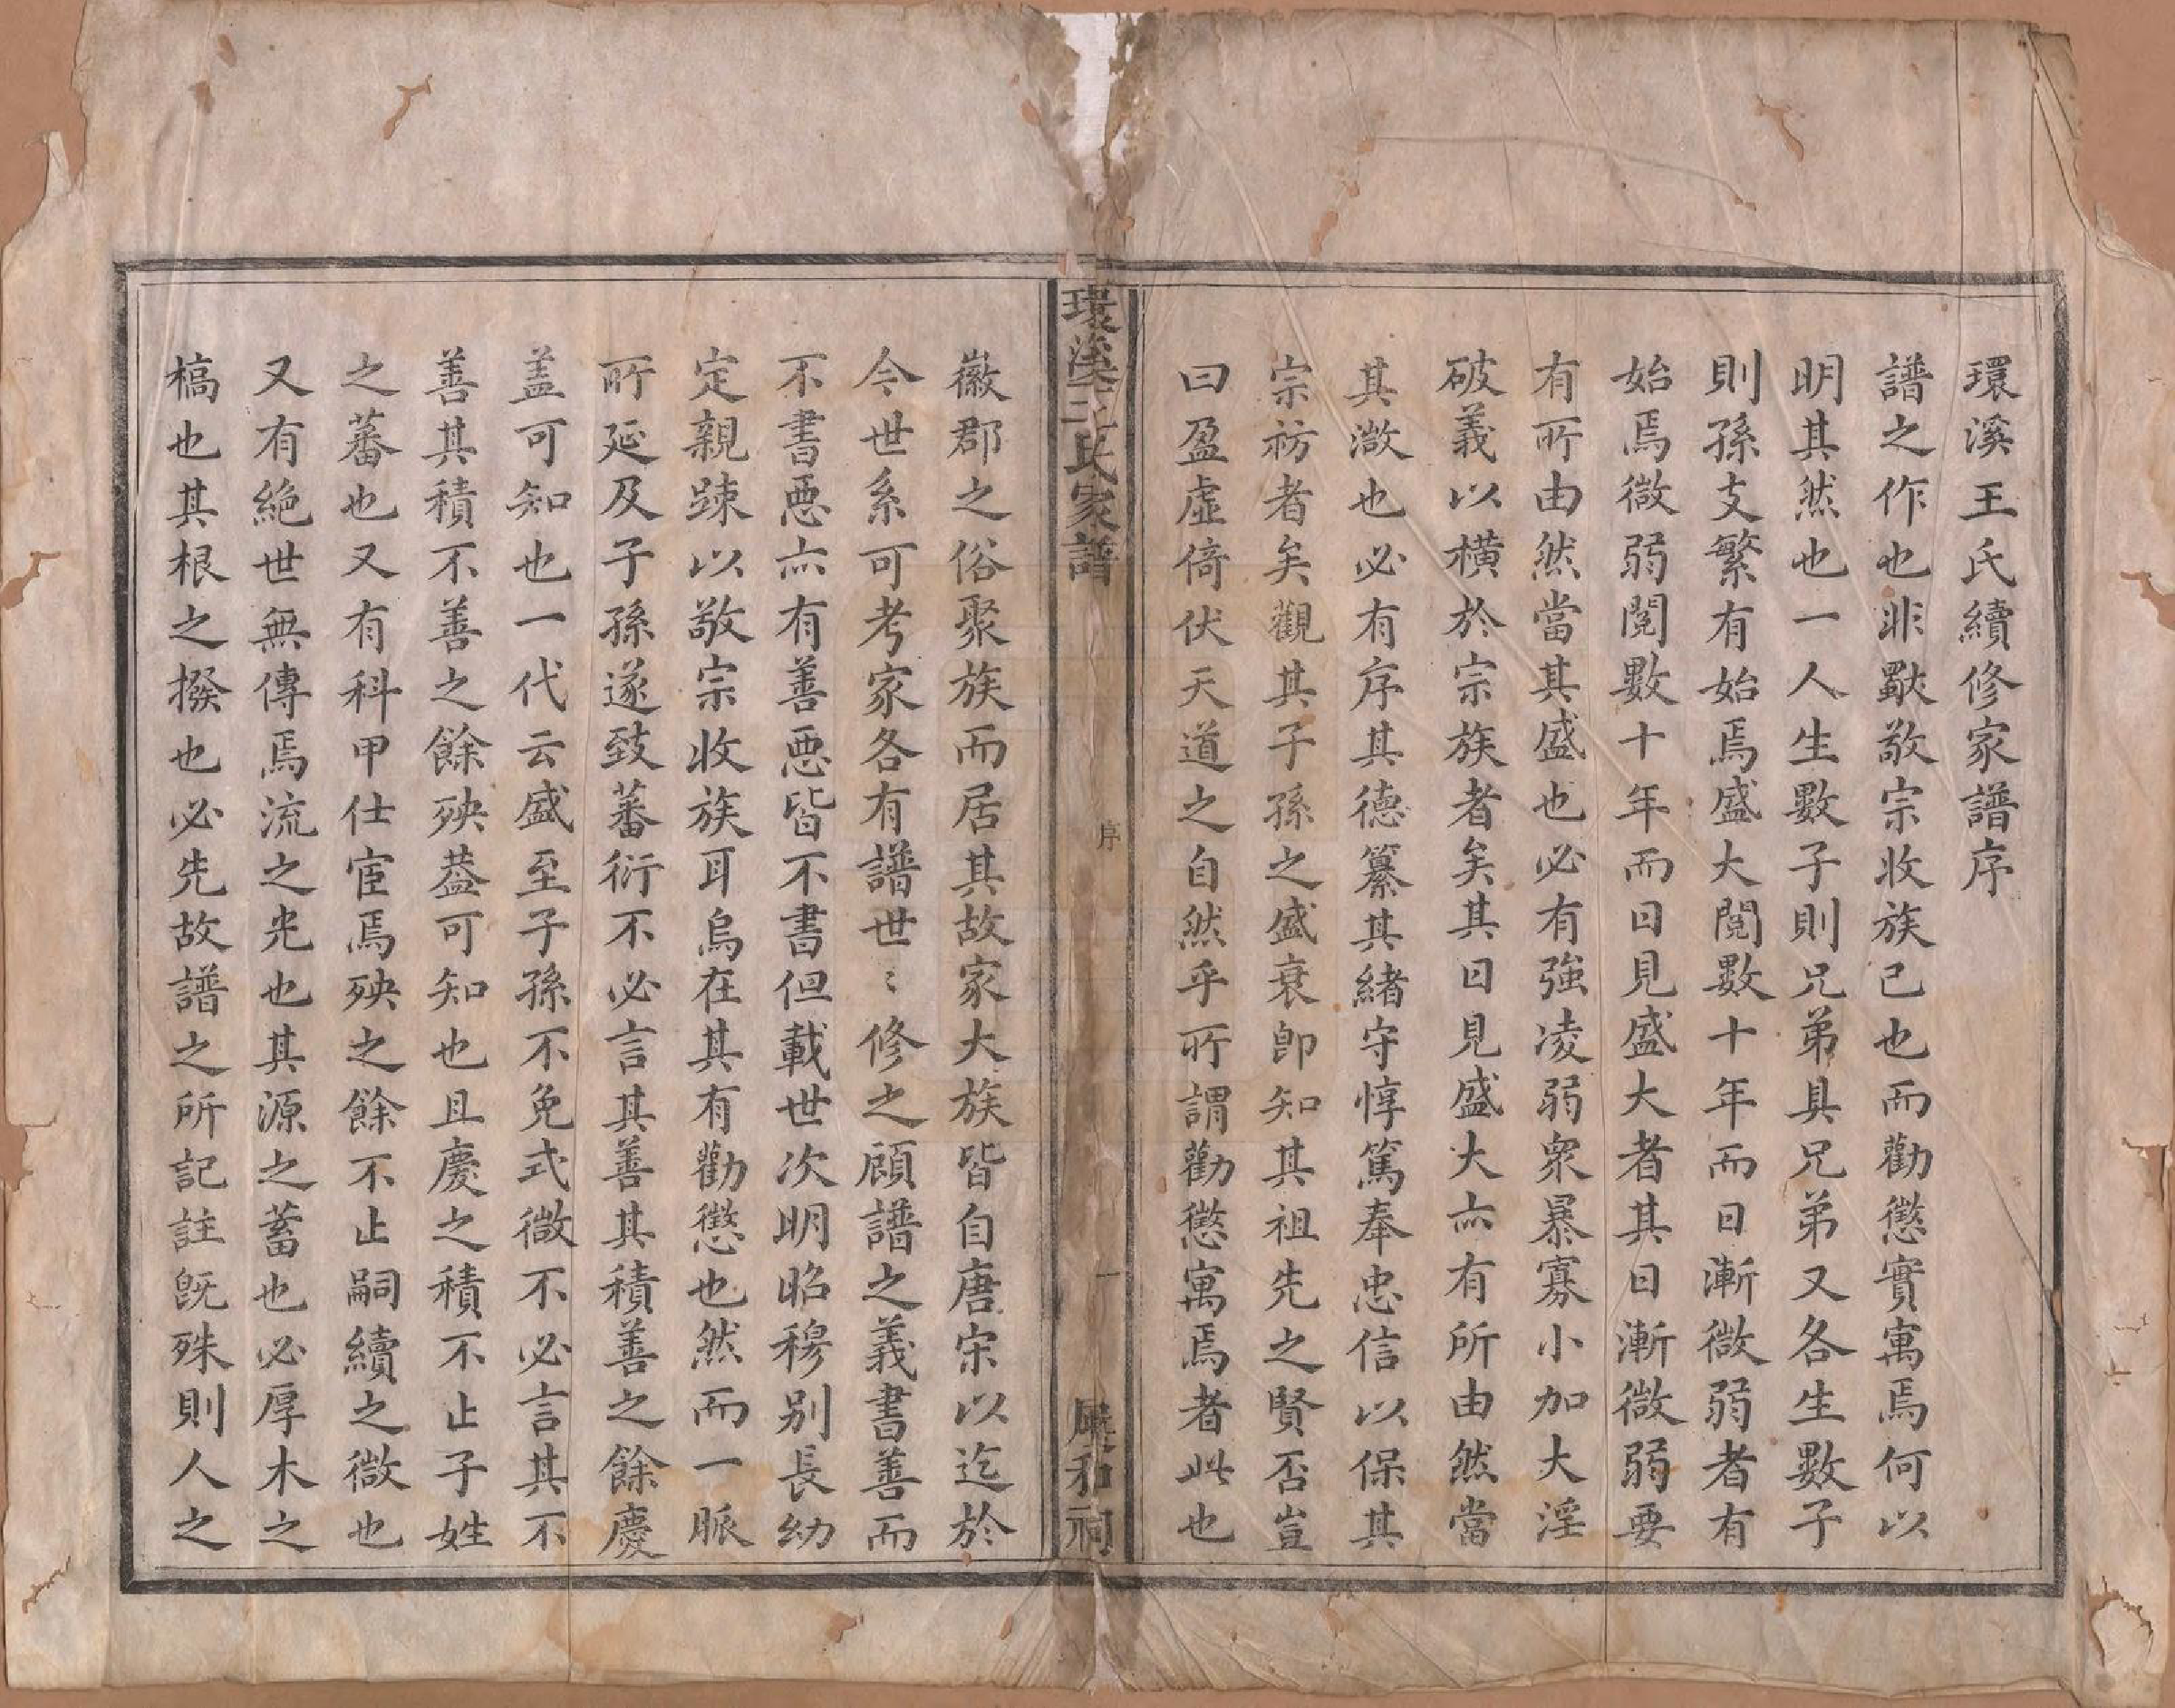 環溪王氏續修家譜序
譜之作也非歐敬宗收族已也而勸懲實寓焉何以
明其然也一人生數子則兄弟具兄弟又各生數子
則孫支繁有始焉盛大閱數十年而日漸微弱者有
始焉微弱閱數十年而日見盛大者其日漸微弱要
有所由然當其盛也必有強凌弱衆暴寡小加大淫
破義以橫於宗族者矣其日見盛大亦有所由然當
其澂也必有序其德纂其緒守惇篤奉忠信以保其
宗祊者矣觀其子孫之盛衰卽知其祖先之賢否豈
曰盈虛倚伏天道之自然乎所謂勸懲寓焉者此也
環溪王氏家譜
序
一
展和祠
徽郡之俗聚族而居其故家大族皆自唐宋以迄於
今世系可考家各有譜世〻修之顧譜之義書善而
不書惡亦有善惡皆不書但載世次明昭穆别長幼
定親踈以敬宗收族耳烏在其有勸懲也然而一脈
所延及子孫遂致蕃衍不必言其善其積善之餘慶
盖可知也一代云盛至子孫不免式微不必言其不
善其積不善之餘殃葢可知也且慶之積不止子姓
之蕃也又有科甲仕宦焉殃之餘不止嗣續之微也
又有絶世無傳焉流之光也其源之蓄也必厚木之
槁也其根之撥也必先故譜之所記註旣殊則人之